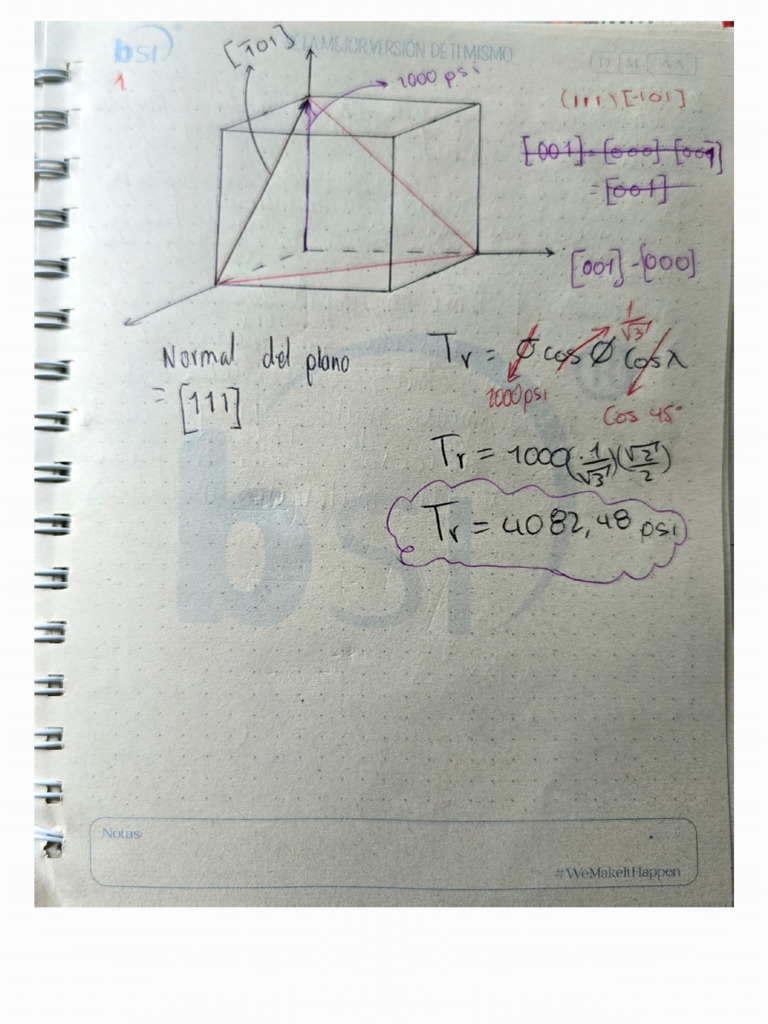 bsi
LA MEJOR VERSIÓN DE TI MISMO
D S L M A
1.
[1̄01]
1000 psi
(111)[-101]
[001]-[000] [001]
= [001]
[001]-[000]
Normal del plano
= [111]
Tr = σ cos Ø cos λ
1/√3
1000 psi
Cos 45°
Tr = 1000(1/√3)(√2/2)
Tr = 4082,48 psi
bsi
®
Notas:
#WeMakeItHappen